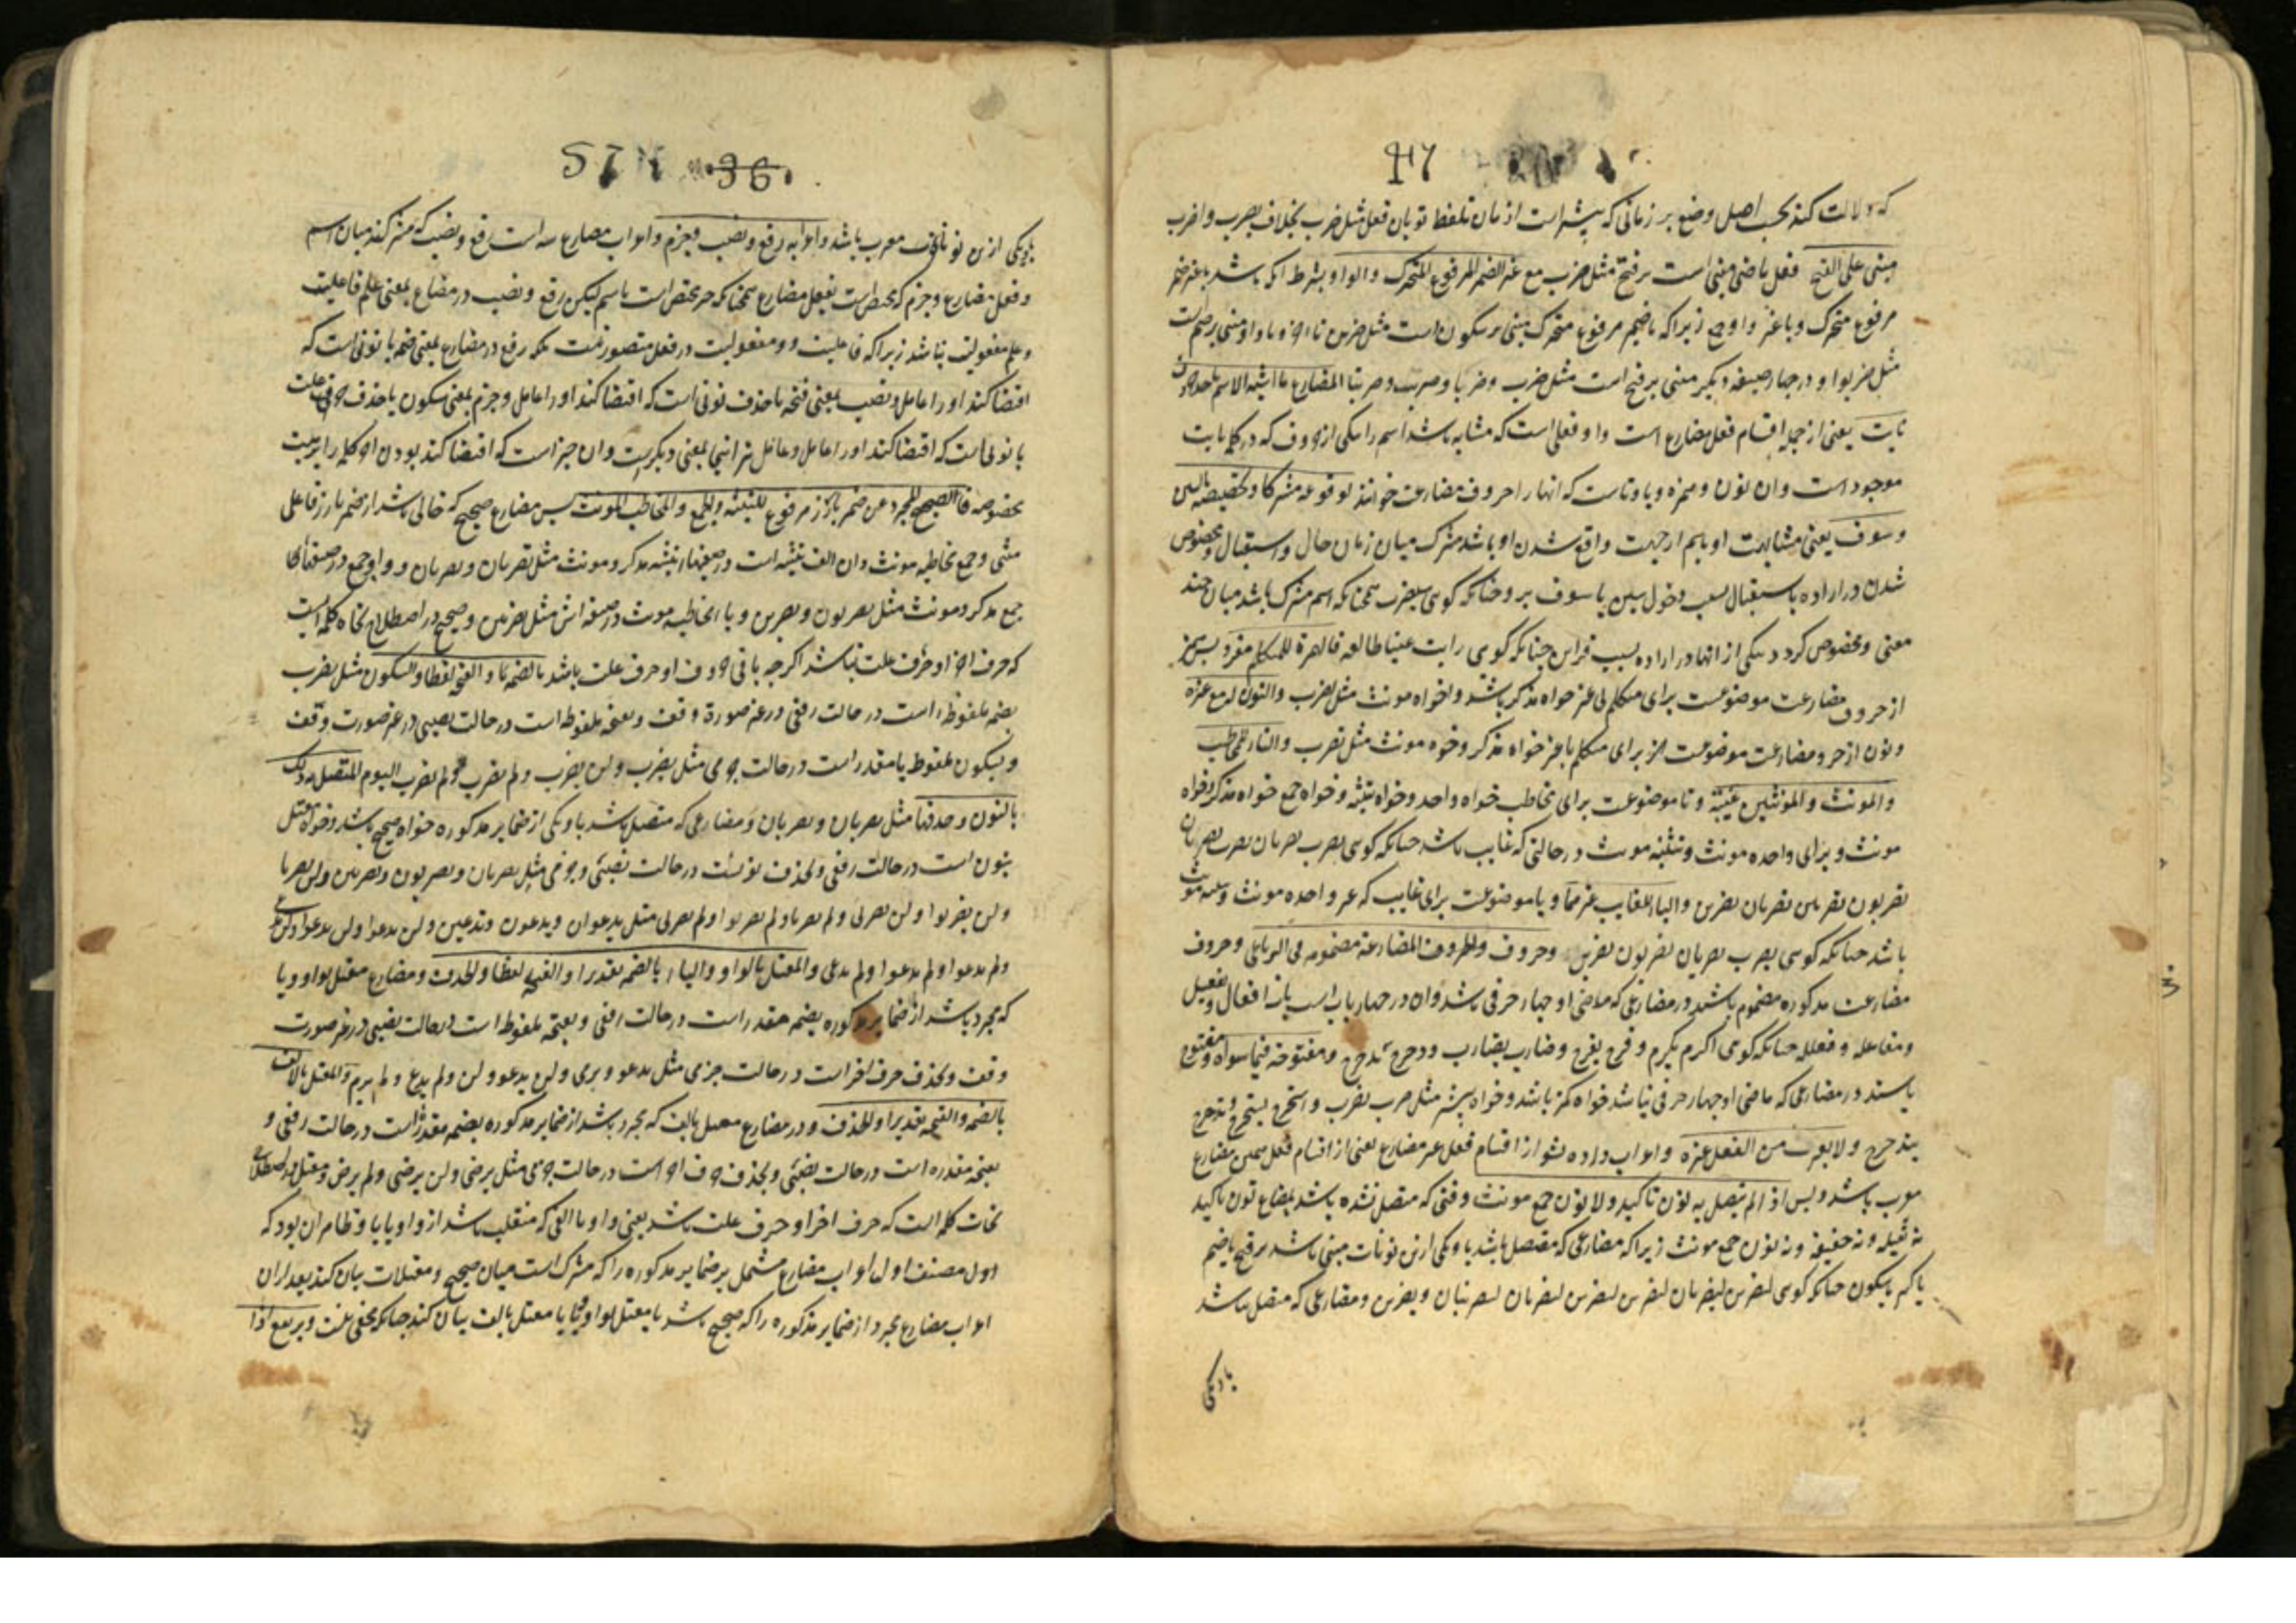 47
که دلالت کند بحسب اصل وضع بر زمانی که پیشتر است از زمان تلفظ تو بان فعل مثل ضرب بخلاف یضرب و اضرب
مبنی علی الفتح فعل ماضی مبنی است بر فتح مثل ضرب مع غیر الضمیر المرفوع المتحرک والواو بشرط انکه باشد با غیر ضمیر
مرفوع متحرک و با غیر واو زیرا که با ضمیر مرفوع متحرک مبنی بر سکون است مثل ضربن تا اخر و با واو مبنی بر ضم است
مثل ضربوا و در چهار صیغه دیگر مبنی بر فتح است مثل ضرب و ضربا و ضربت و ضربتا المضارع ما اشبه الاسم باحد حروف
نایت یعنی از جمله اقسام فعل مضارع است و او فعلی است که مشابه باشد اسم را بیکی از حروف که در کلمه نایت
موجود است و ان نون و همزه و یا و تاست که انها را حروف مضارعت خوانند لوقوعه مشترکا و تخصیصه بالسین
و سوف یعنی مشابهت او باسم از جهت واقع شدن او باشد مشترک میان زمان حال و استقبال و مخصوص
شدن در اراده باستقبال بسبب دخول سین یا سوف بر و چنانکه کوی سیضرب همچنانکه اسم مشترک باشد میان چند
معنی و مخصوص کردد بیکی از انها در اراده بسبب قراین چنانکه کوی رایت عینا طالعه فالهمزة للمتکلم مفردا پس همزه
از حروف مضارعت موضوعست برای متکلم بی غیر خواه مذکر باشد و خواه مونث مثل اضرب والنون له مع غیره
و نون از حروف مضارعت موضوعست برای متکلم با غیر خواه مذکر و خواه مونث مثل نضرب والتاء للمخاطب
والمونث والمونثین غیبة و تا موضوعست برای مخاطب خواه واحد و خواه تثنیه و خواه جمع خواه مذکر و خواه
مونث و برای واحده مونث و تثنیه مونث در حالتی که غایب باشد چنانکه کوی تضرب تضربان تضرب تضربان
تضربون تضربین تضربان تضربن والیاء للغایب غیرهما و یا موضوعست برای غایب که غیر واحده مونث و تثنیه مونث
باشد چنانکه کوی یضرب یضربان یضربون یضربن و حروف المضارعة مضمومه فی الرباعی و حروف
مضارعت مذکوره مضموم باشند در مضارعی که ماضی او چهار حرفی باشد وان در چهار باب است باب افعال و تفعیل
و مفاعله و فعلله چنانکه کوی اکرم یکرم و فرح یفرح و ضارب یضارب و دحرج یدحرج و مفتوحة فیما سواه و مفتوح
باشند در مضارعی که ماضی او چهار حرفی نباشد خواه کمتر باشد و خواه بیشتر مثل ضرب یضرب و استخرج یستخرج و تدحرج
یتدحرج ولا یعرب من الفعل غیره و اعراب داده نشود از اقسام فعل غیر مضارع یعنی از اقسام فعل همین مضارع
معرب باشد و بس اذا لم یتصل به نون تاکید ولا نون جمع مونث وقتی که متصل نشده باشد بمضارع نون تاکید
نه ثقیله و نه خفیفه و نه نون جمع مونث زیرا که مضارعی که متصل باشد با و یکی ازین نونات مبنی باشد بر فتح یا ضم
یا کسر یا سکون چنانکه کوی لیضربن لیضربان لیضربن لتضربن لتضربان لیضربنان و یضربن و مضارعی که متصل نباشد
بادیکی
57 36
بادیکی ازین نونات معرب باشد و اعرابه رفع و نصب و جزم و اعراب مضارع سه است رفع و نصب که مشترکند میان اسم
و فعل مضارع و جزم که مختص است بفعل مضارع همچنانکه جر مختص است باسم لیکن رفع و نصب در مضارع بمعنی علم فاعلیت
و علم مفعولیت نباشد زیرا که فاعلیت و مفعولیت در فعل متصور نیست بلکه رفع در مضارع بمعنی ضمه یا نونی است که
اقتضا کند او را عامل و نصب بمعنی فتحه یا حذف نونی است که اقتضا کند او را عامل و جزم بمعنی سکون یا حذف حرف علت
یا نونی است که اقتضا کند او را عامل و عامل نیز اینجا بمعنی دیکرست و ان چیز است که اقتضا کند بودن اخر کلمه را بر هیئت
مخصوصه فالصحیح المجرد عن ضمیر بارز مرفوع للتثنیة والجمع والمخاطب المونث پس مضارع صحیح که خالی باشد از ضمیر بارز فاعلی
مثنی و جمع و مخاطبه مونث وان الف تثنیه است در صیغهای تثنیه مذکر و مونث مثل یضربان و تضربان و واو جمع در صیغهای
جمع مذکر و مونث مثل یضربون و یضربن و یا المخاطبه مونث در صیغه اش مثل تضربین و صحیح در اصطلاح نحاة کلمه ایست
که حرف اخر او حرف علت نباشد اکر چه باقی حروف او حرف علت باشد بالضمة والفتحة لفظا والسکون مثل یضرب
بضمه ملفوظه است در حالت رفعی در غیر صورة وقف و بفتحه ملفوظ است در حالت نصبی در غیر صورت وقف
و بسکون ملفوظ یا مقدر است در حالت جزمی مثل یضرب و لن یضرب و لم یضرب و لم یضرب الیوم المتصل به ذلک
بالنون و حذفها مثل یضربان و تضربان و مضارعی که متصل باشد با و یکی از ضمایر مذکوره خواه صحیح باشد و خواه معتل
بنون است در حالت رفعی و بحذف نونست در حالت نصبی و جزمی مثل یضربان و یضربون و تضربین و لن یضربا
و لن یضربوا و لن تضربی و لم یضربا و لم یضربوا و لم تضربی مثل یدعوان و یدعون و تدعین و لن یدعوا و لن یدعوا و لن تدعی
و لم یدعوا و لم یدعوا و لم تدعی والمعتل بالواو والیاء بالضمة تقدیرا والفتحة لفظا والحذف و مضارع معتل بواو و یا
که مجرد باشد از ضمایر مذکوره بضمه مقدر است در حالت رفعی و بفتحه ملفوظ است در حالت نصبی در غیر صورت
وقف و بحذف حرف اخر است در حالت جزمی مثل یدعو و یرمی و لن یدعو و لن و لم یدع و لم یرم والمعتل بالالف
بالضمة والفتحة تقدیرا والحذف و در مضارع معتل بالف که مجرد باشد از ضمایر مذکوره بضمه مقدر است در حالت رفعی و
بفتحه مقدره است در حالت نصبی و بحذف حرف اخر است در حالت جزمی مثل یرضی و لن یرضی و لم یرض و معتل در اصطلاح
نحات کلمه است که حرف اخر او حرف علت باشد یعنی واو یا الفی که منقلب باشد از واو یا یا و ظاهر ان بود که
اول مصنف اول اعراب مضارع مشتمل بر ضمایر مذکوره را که مشترک است میان صحیح و معتلات بیان کند بعد ازان
اعراب مضارع مجرد از ضمایر مذکوره را که صحیح باشد یا معتل بواو و یا یا معتل بالف بیان کند چنانکه مخفی نیست و یرتفع اذا